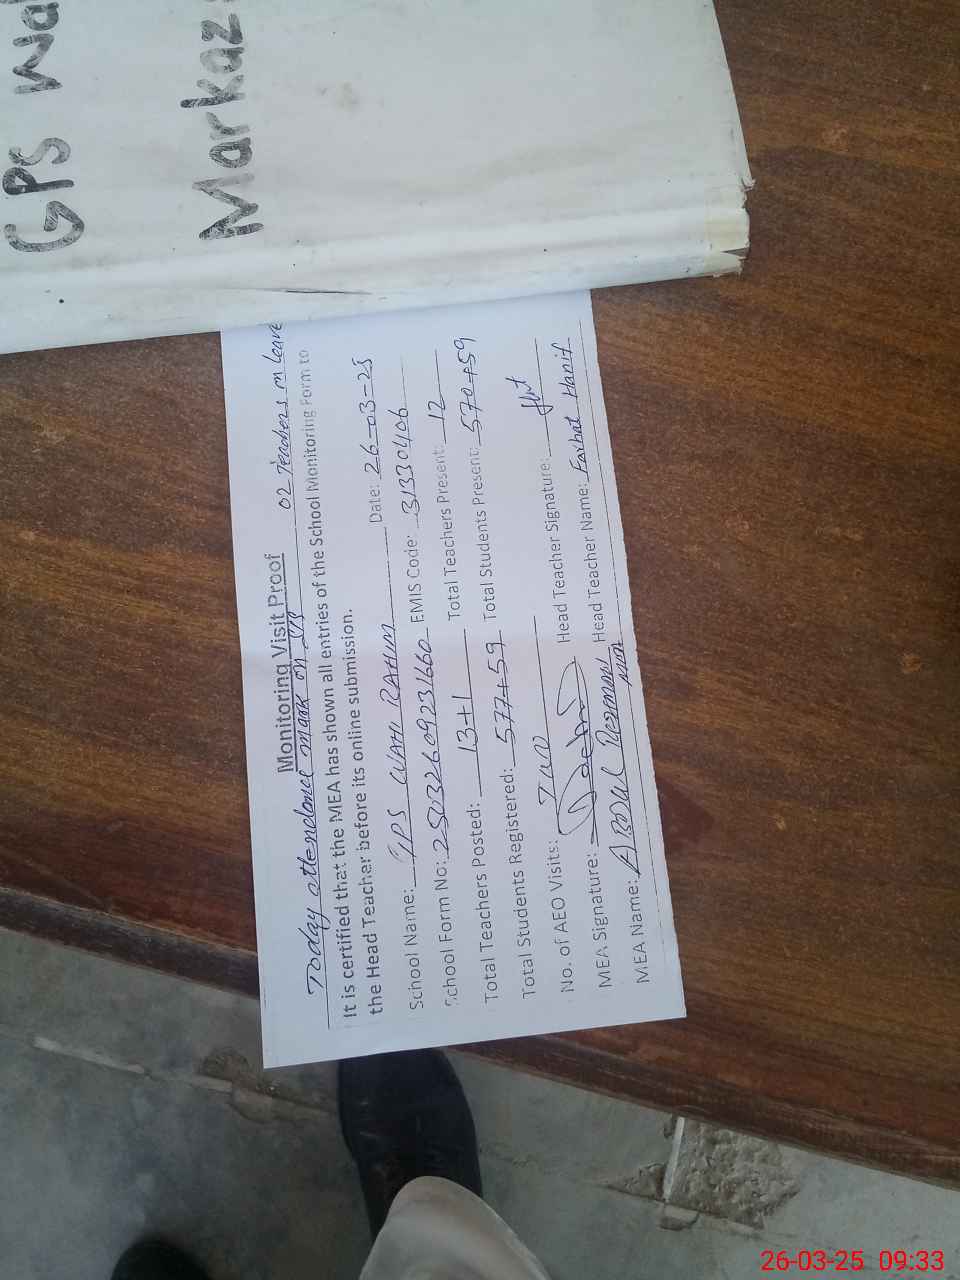 GPS
Markaz
Monitoring Visit Proof
Today attendance mark on 02 Teachers on leave
It is certified that the MEA has shown all entries of the School Monitoring Form to
the Head Teacher before its online submission.
Date: 26-03-25
School Name: GPS WAHI RAHIM
School Form No: 25032609231660 EMIS Code: 31330406
Total Teachers Posted: 13+1 Total Teachers Present: 12
Total Students Registered: 577+59 Total Students Present: 570+59
No. of AEO Visits: Two
MEA Signature: Head Teacher Signature:
MEA Name: ABDUL Rehman Head Teacher Name: Farhat Hanif
26-03-25 09:33